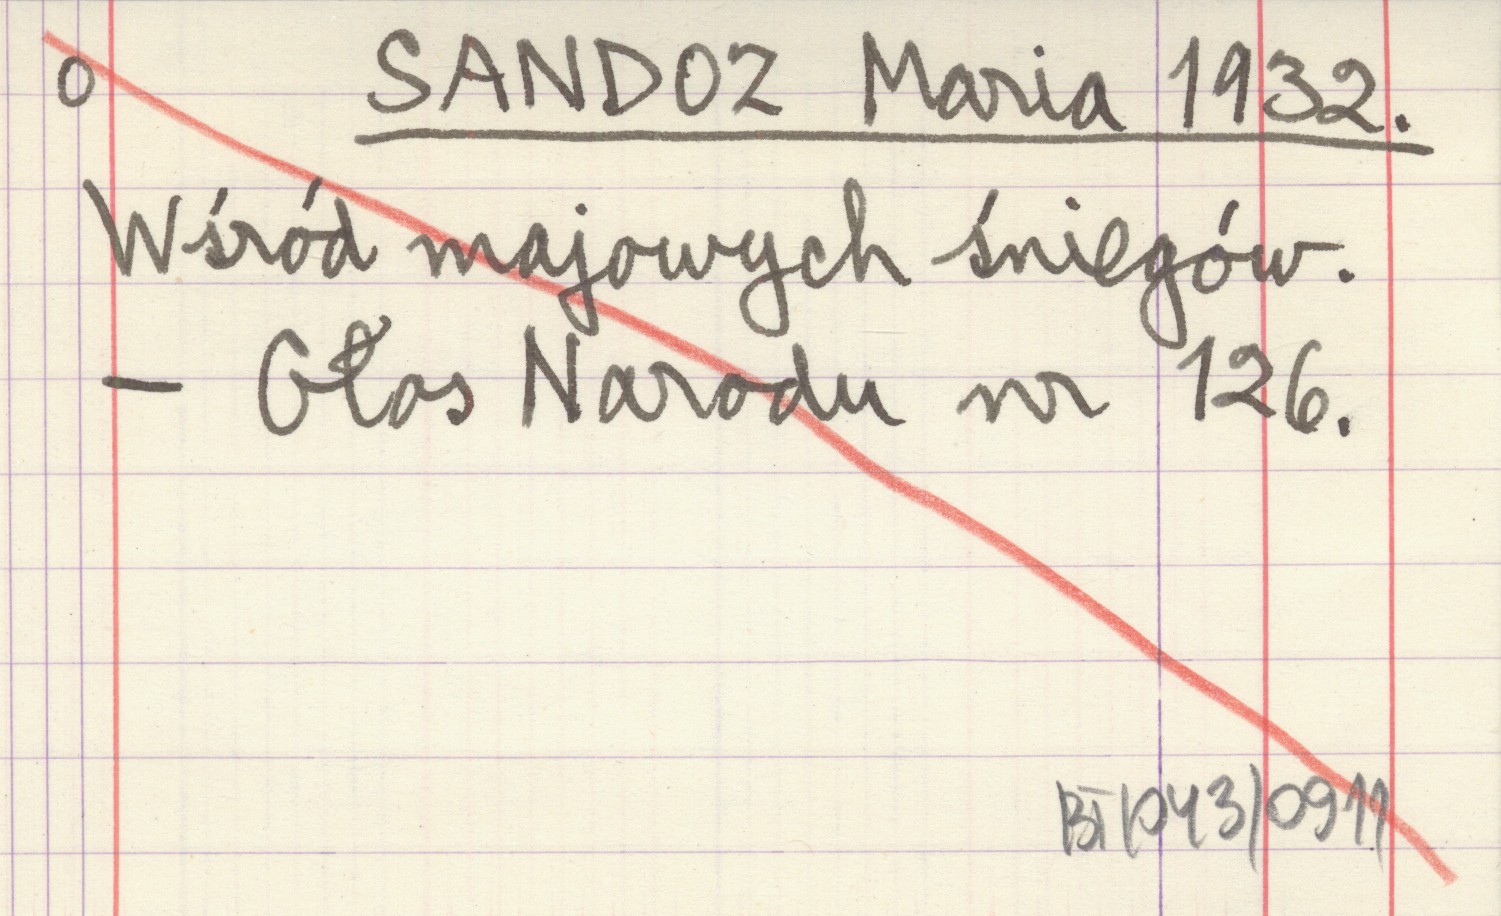 o SANDOZ Maria 1932.
Wśród majowych śniegów.
— Głos Narodu nr 126.
BT/043/0911